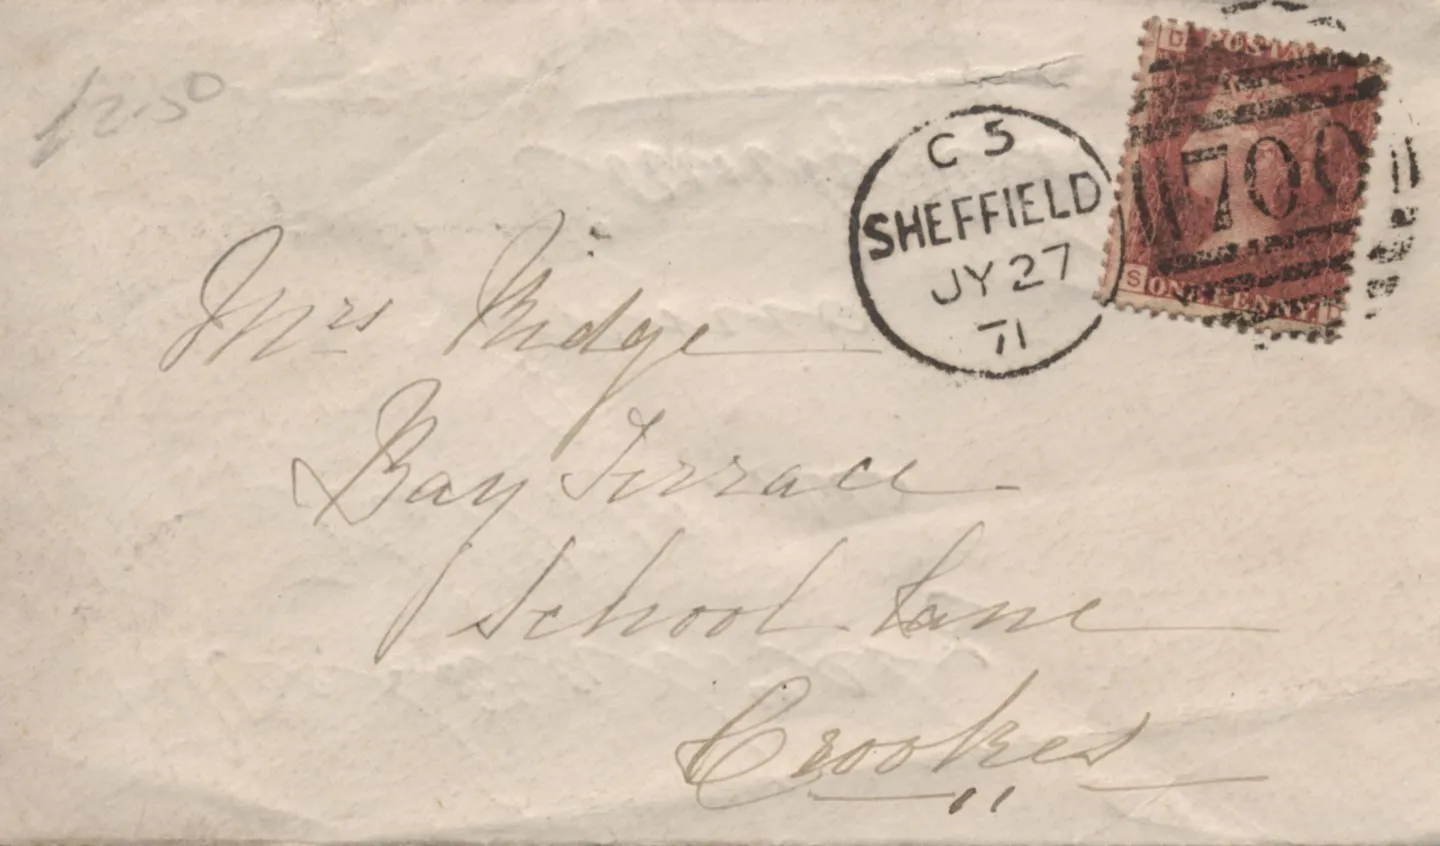 12.50
C 5
SHEFFIELD
JY 27
71
D POSTA
700
S ONE PENNY D
Mrs Ridge
Bay Terrace
School Lane
Crookes